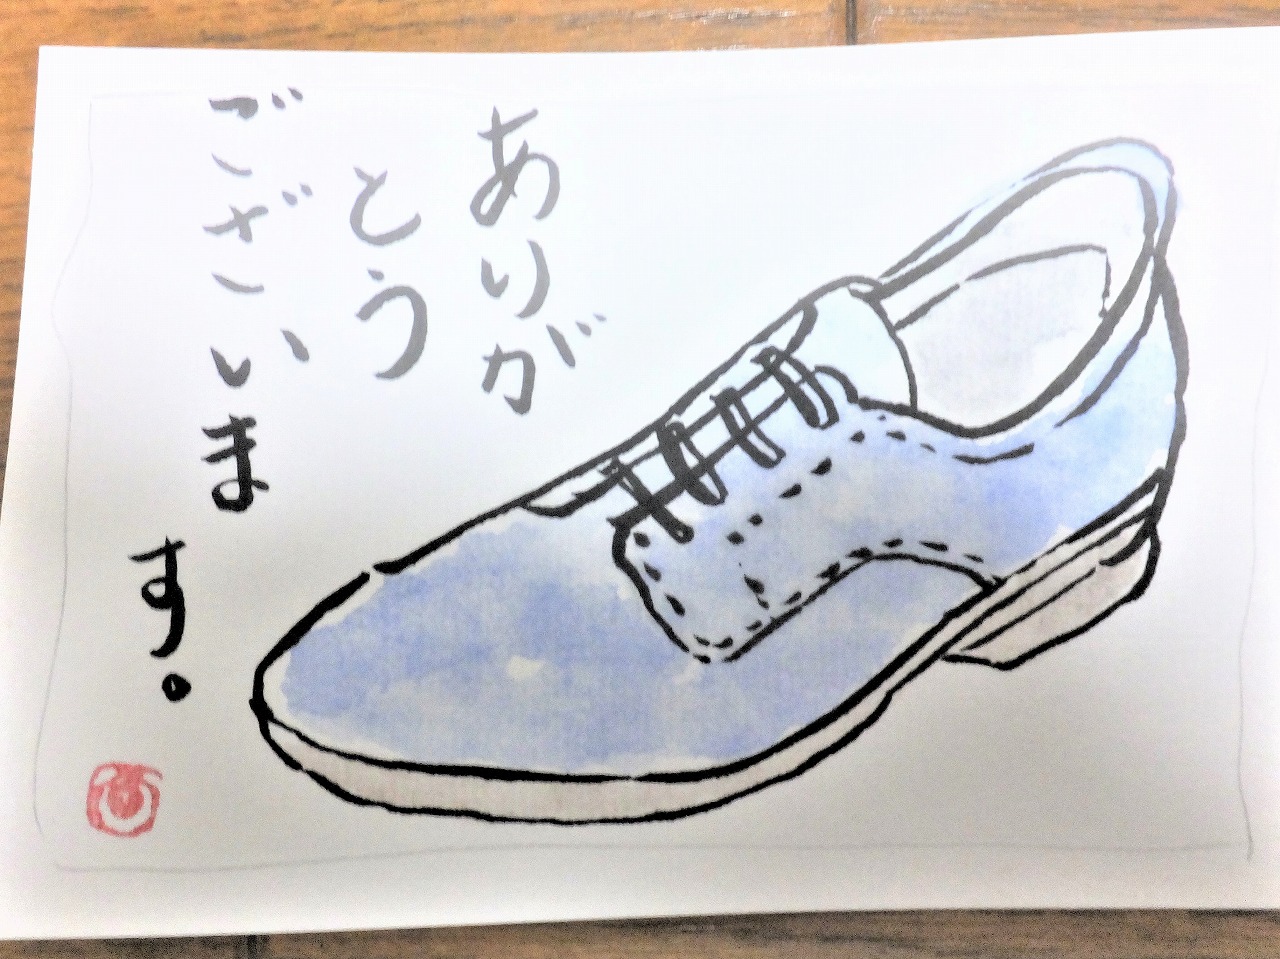 ありが
とう
ございま
す。